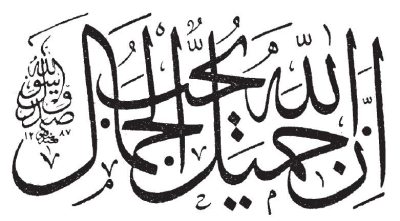 إِنَّ الله جميل يحبُّ الجمال
صدق رسول الله
١٢٨٧